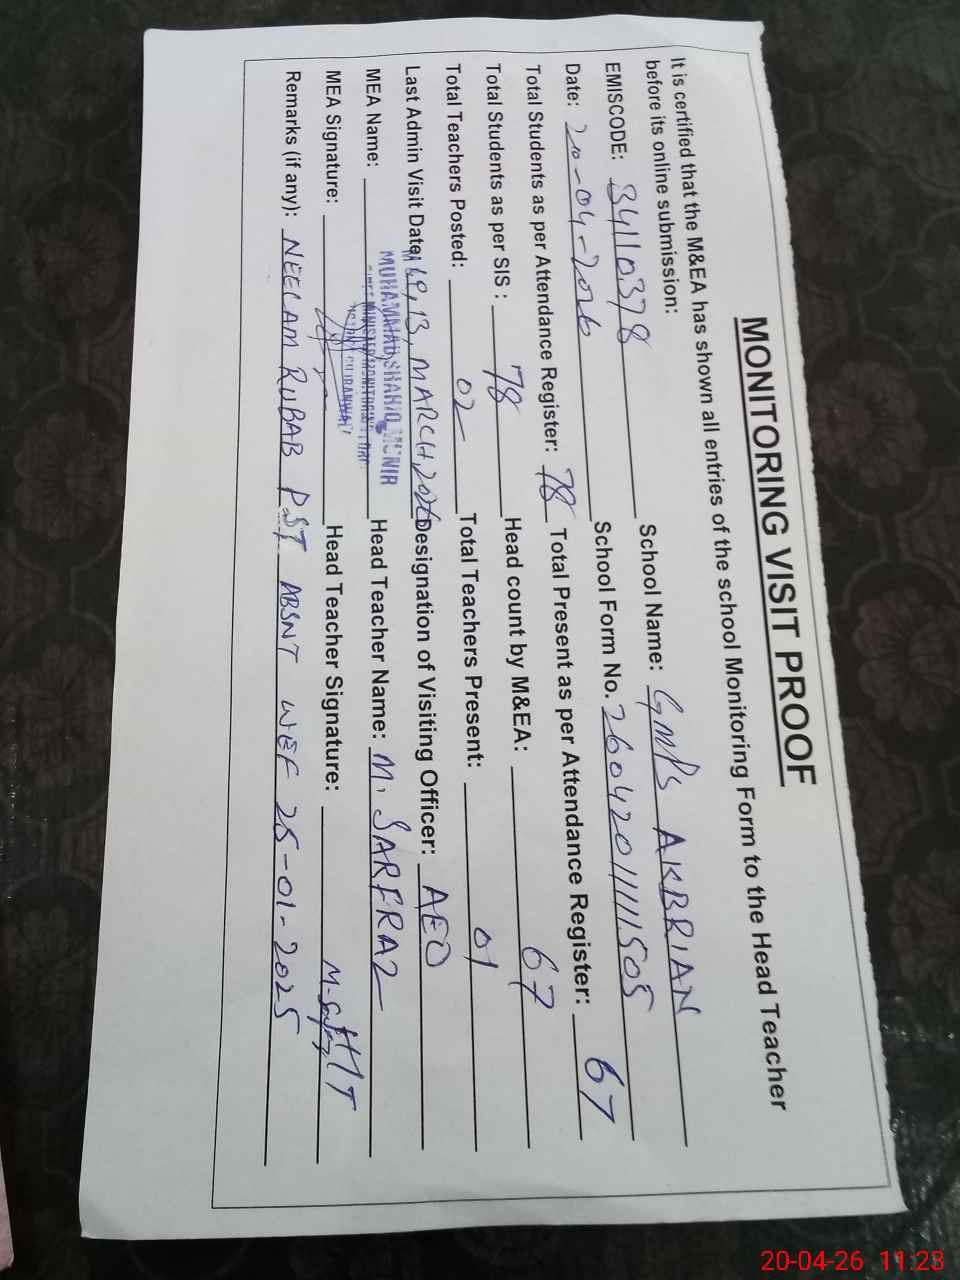 MONITORING VISIT PROOF
It is certified that the M&EA has shown all entries of the school Monitoring Form to the Head Teacher
before its online submission:
EMISCODE: 34110378 School Name: GMPS AKBRIAN
Date: 20-04-2026 School Form No. 260420111505
Total Students as per Attendance Register: 78 Total Present as per Attendance Register: 67
Total Students as per SIS : 78 Head count by M&EA: 67
Total Teachers Posted: 02 Total Teachers Present: 01
Last Admin Visit Date: 13, MARCH, 2026 Designation of Visiting Officer: AEO
MEA Name: MUHAMMAD SHAHID MUNIR Head Teacher Name: M. SARFRAZ
MEA Signature: Head Teacher Signature:
Remarks (if any): NEELAM RUBAB PST ABSNT WEF 25-01-2025
20-04-26 11:23